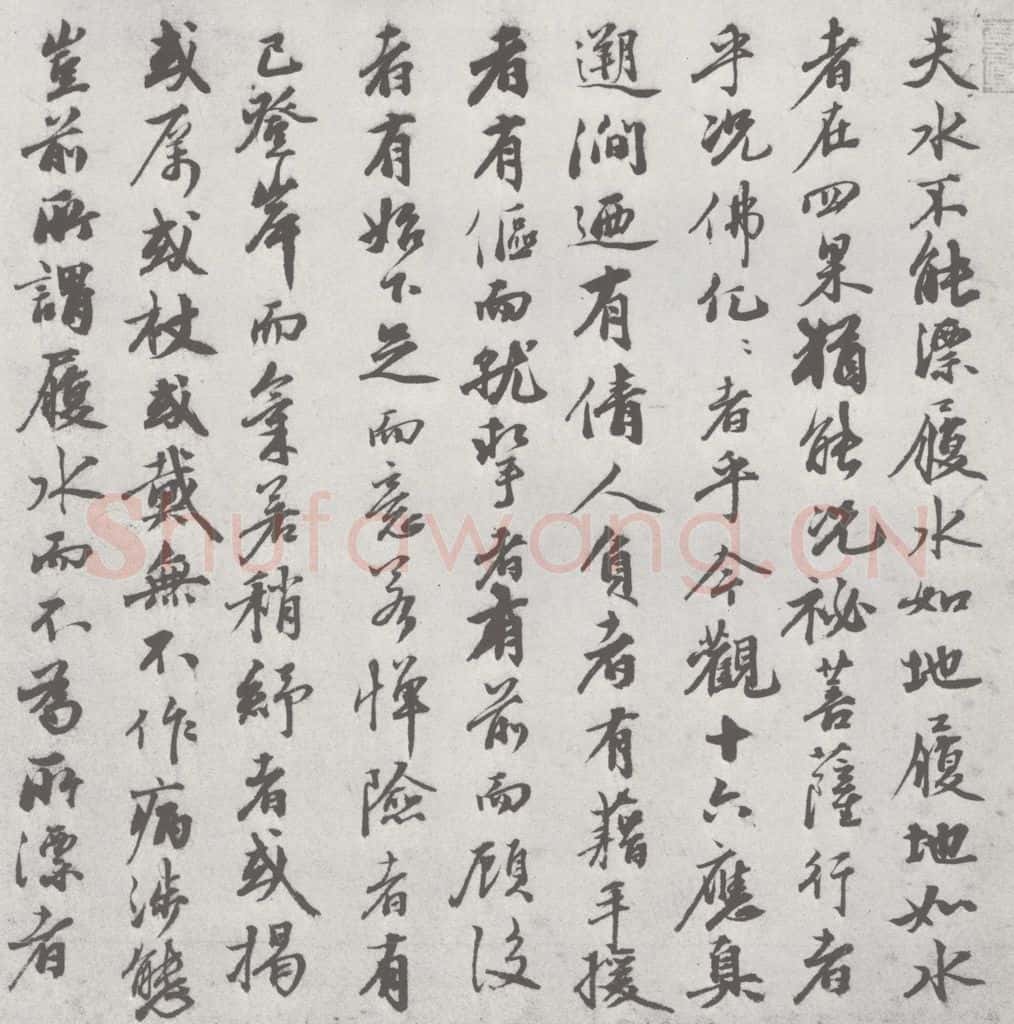 夫水不能漂履水如地履地如水
者在四果猶能況祕菩薩行者
乎況佛化〻者乎今觀十六應真
遡澗迺有倩人負者有藉手援
者有傴而就者有前而顧後
者有始下足而意若憚險者有
已登岸而氣若稍紓者或揭
或厲或杖或戴無不作病涉態
豈前所謂履水而不為所漂者
Shufawang.CN